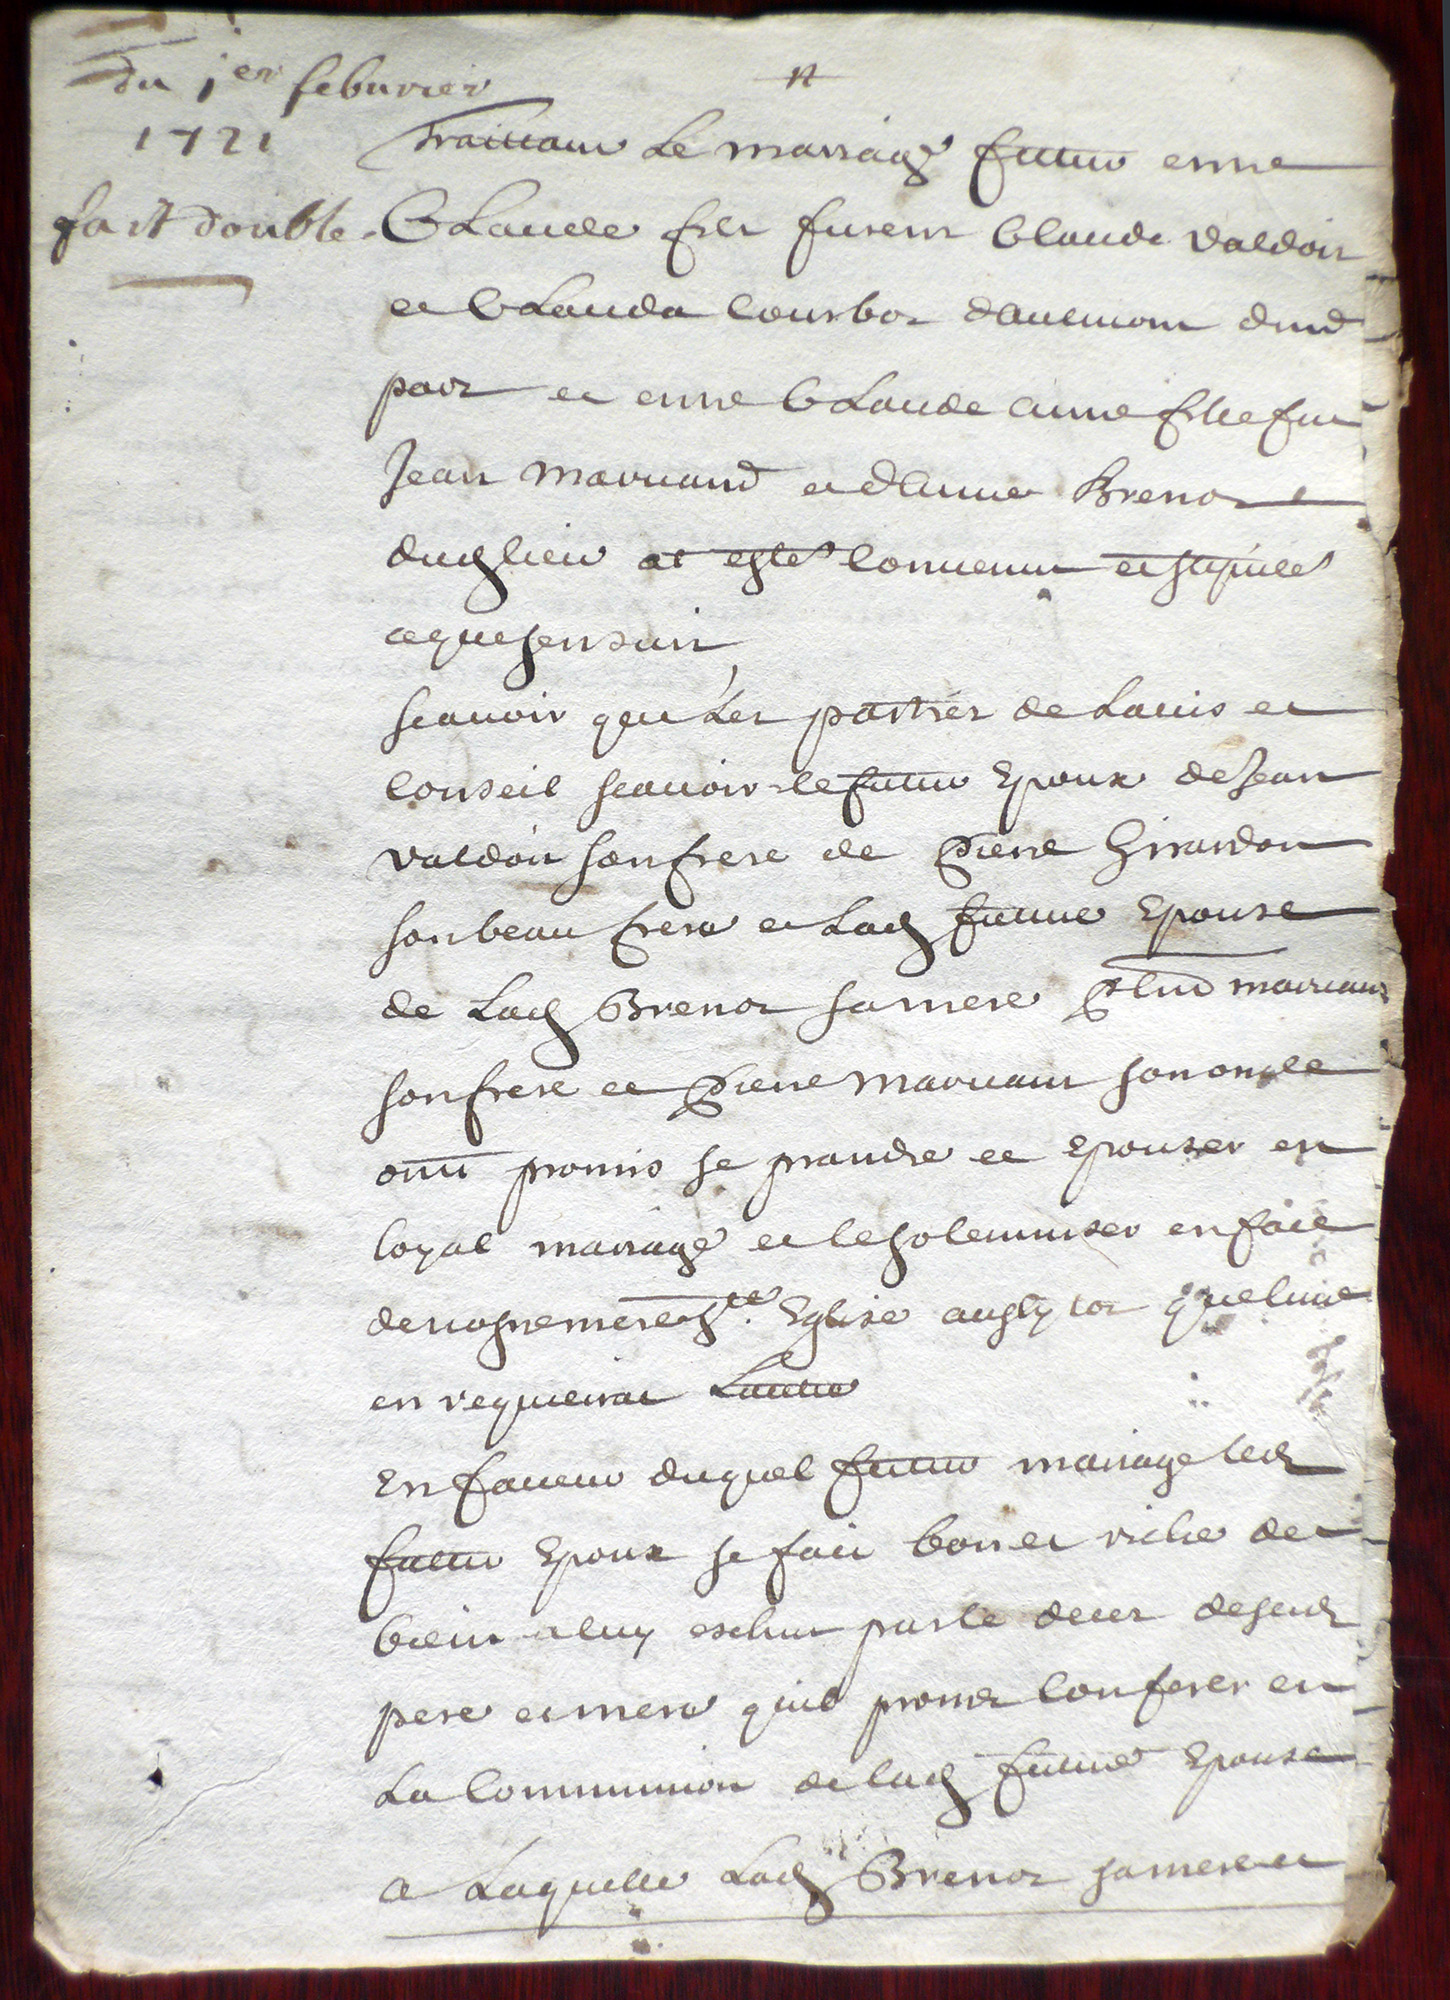 du 1er febuvrier
1721
fait double
Traittant le mariage futur entre
Claude filz furent Claude Valdoit
et Clauda Courbot daulmont dune
part et entre Claude Anne fille fut
Jean Marvand et danne Brenot
dudt lieu at esté convenu et stipulé
ceque sensuit
scavoir que les parties de lavis et
conseil scavoir le futur Epoux de Jean
Valdoit son frere de Pierre Girardon
son beau frere et ladt future Epouse
de ladt Brenot sa mere
son frere et Pierre Marvant son oncle
ont promis se prandre et epouser en
loyal mariage et le solemniser en face
de nostre mere Ste Eglise austy tot que lune
en requierrat lautre
En faveur duquel futur mariage ledt
futur Epoux se fait bon et riche des
bien a luy eschut par le deces de sesdt
pere et mere quil promet conferer en
la Communion de ladt future Epouse
a Laquelle Ladt Brenot sa mere et